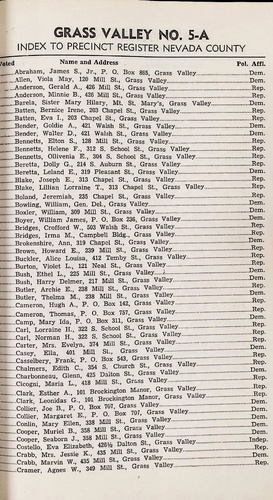 GRASS VALLEY NO. 5-A
INDEX TO PRECINCT REGISTER NEVADA COUNTY
Voted Name and Address Pol. Affl.
Abraham, James S., Jr., P. O. Box 865, Grass Valley Dem.
Allen, Viola May, 120 Mill St., Grass Valley Dem.
Anderson, Gerald A., 426 Mill St., Grass Valley Rep.
Anderson, Minnie B., 426 Mill St., Grass Valley Rep.
Barela, Sister Mary Hilary, Mt. St. Mary's, Grass Valley Dem.
Batten, Bernice Irene, 203 Chapel St., Grass Valley Rep.
Batten, Eva I., 203 Chapel St., Grass Valley Rep.
Bender, Goldie A., 421 Walsh St., Grass Valley Dem.
Bender, Walter D., 421 Walsh St., Grass Valley Dem.
Bennetts, Elton S., 128 Mill St., Grass Valley Rep.
Bennetts, Helene F., 312 S. School St., Grass Valley Rep.
Bennetts, Olliveria E., 304 S. School St., Grass Valley Rep.
Beretta, Dolly G., 214 S. Auburn St., Grass Valley Rep.
Beretta, Leland E., 319 Pleasant St., Grass Valley Dem.
Blake, Joseph E., 313 Chapel St., Grass Valley Dem.
Blake, Lillian Lorraine T., 313 Chapel St., Grass Valley Rep.
Boland, Jeremiah, 235 Chapel St., Grass Valley Rep.
Bowling, William, Gen. Del., Grass Valley Dem.
Boxler, William, 309 Mill St., Grass Valley Dem.
Boyer, William James, P. O. Box 236, Grass Valley Rep.
Bridges, Crofford W., 503 Walsh St., Grass Valley Rep.
Bridges, Irma M., Campbell Bldg., Grass Valley Rep.
Brokenshire, Ann, 319 Chapel St., Grass Valley Dem.
Brown, Howard E., 239 Mill St., Grass Valley Rep.
Buckler, Alice Louisa, 412 Temby St., Grass Valley Rep.
Burton, Violet L., 121 Neal St., Grass Valley Rep.
Bush, Ethel L., 225 Mill St., Grass Valley Dem.
Bush, Harry Delmer, 217 Mill St., Grass Valley Dem.
Butler, Archie E., 238 Mill St., Grass Valley Rep.
Butler, Thelma M., 238 Mill St., Grass Valley Dem.
Cameron, Hugh A., P. O. Box 142, Grass Valley Rep.
Cameron, Thomas, P. O. Box 757, Grass Valley Rep.
Camp, Mary Ida, P. O. Box 311, Grass Valley Dem.
Carl, Lorraine H., 322 S. School St., Grass Valley Rep.
Carl, Norman H., 322 S. School St., Grass Valley Rep.
Carter, Mrs. Evelyn, 374 Mill St., Grass Valley Dem.
Casey, Ella, 401 Mill St., Grass Valley Rep.
Casselbery, Frank, P. O. Box 543, Grass Valley Rep.
Chalmers, Edith C., 354 S. Church St., Grass Valley Rep.
Charbonneau, Glenn, 425 Dalton St., Grass Valley Dem.
Cicogni, Maria L., 418 Mill St., Grass Valley Rep.
Clark, Esther A., 101 Brockington Manor, Grass Valley Rep.
Clark, Leonidas G., 101 Brockington Manor, Grass Valley Rep.
Collier, Joe B., P. O. Box 707, Grass Valley Dem.
Collier, Margaret E., P. O. Box 707, Grass Valley Dem.
Conlin, Mary Ellen, 338 Mill St., Grass Valley Dem.
Cooper, Muriel B., 358 Mill St., Grass Valley Dem.
Cooper, Seaborn J., 358 Mill St., Grass Valley Indep.
Costello, Eva Elizabeth, 426½ Dalton St., Grass Valley Rep.
Crabb, Mrs. Jessie K., 435 Mill St., Grass Valley Dem.
Crabb, Marvin W., 435 Mill St., Grass Valley Rep.
Cramer, Agnes W., 349 Mill St., Grass Valley Rep.